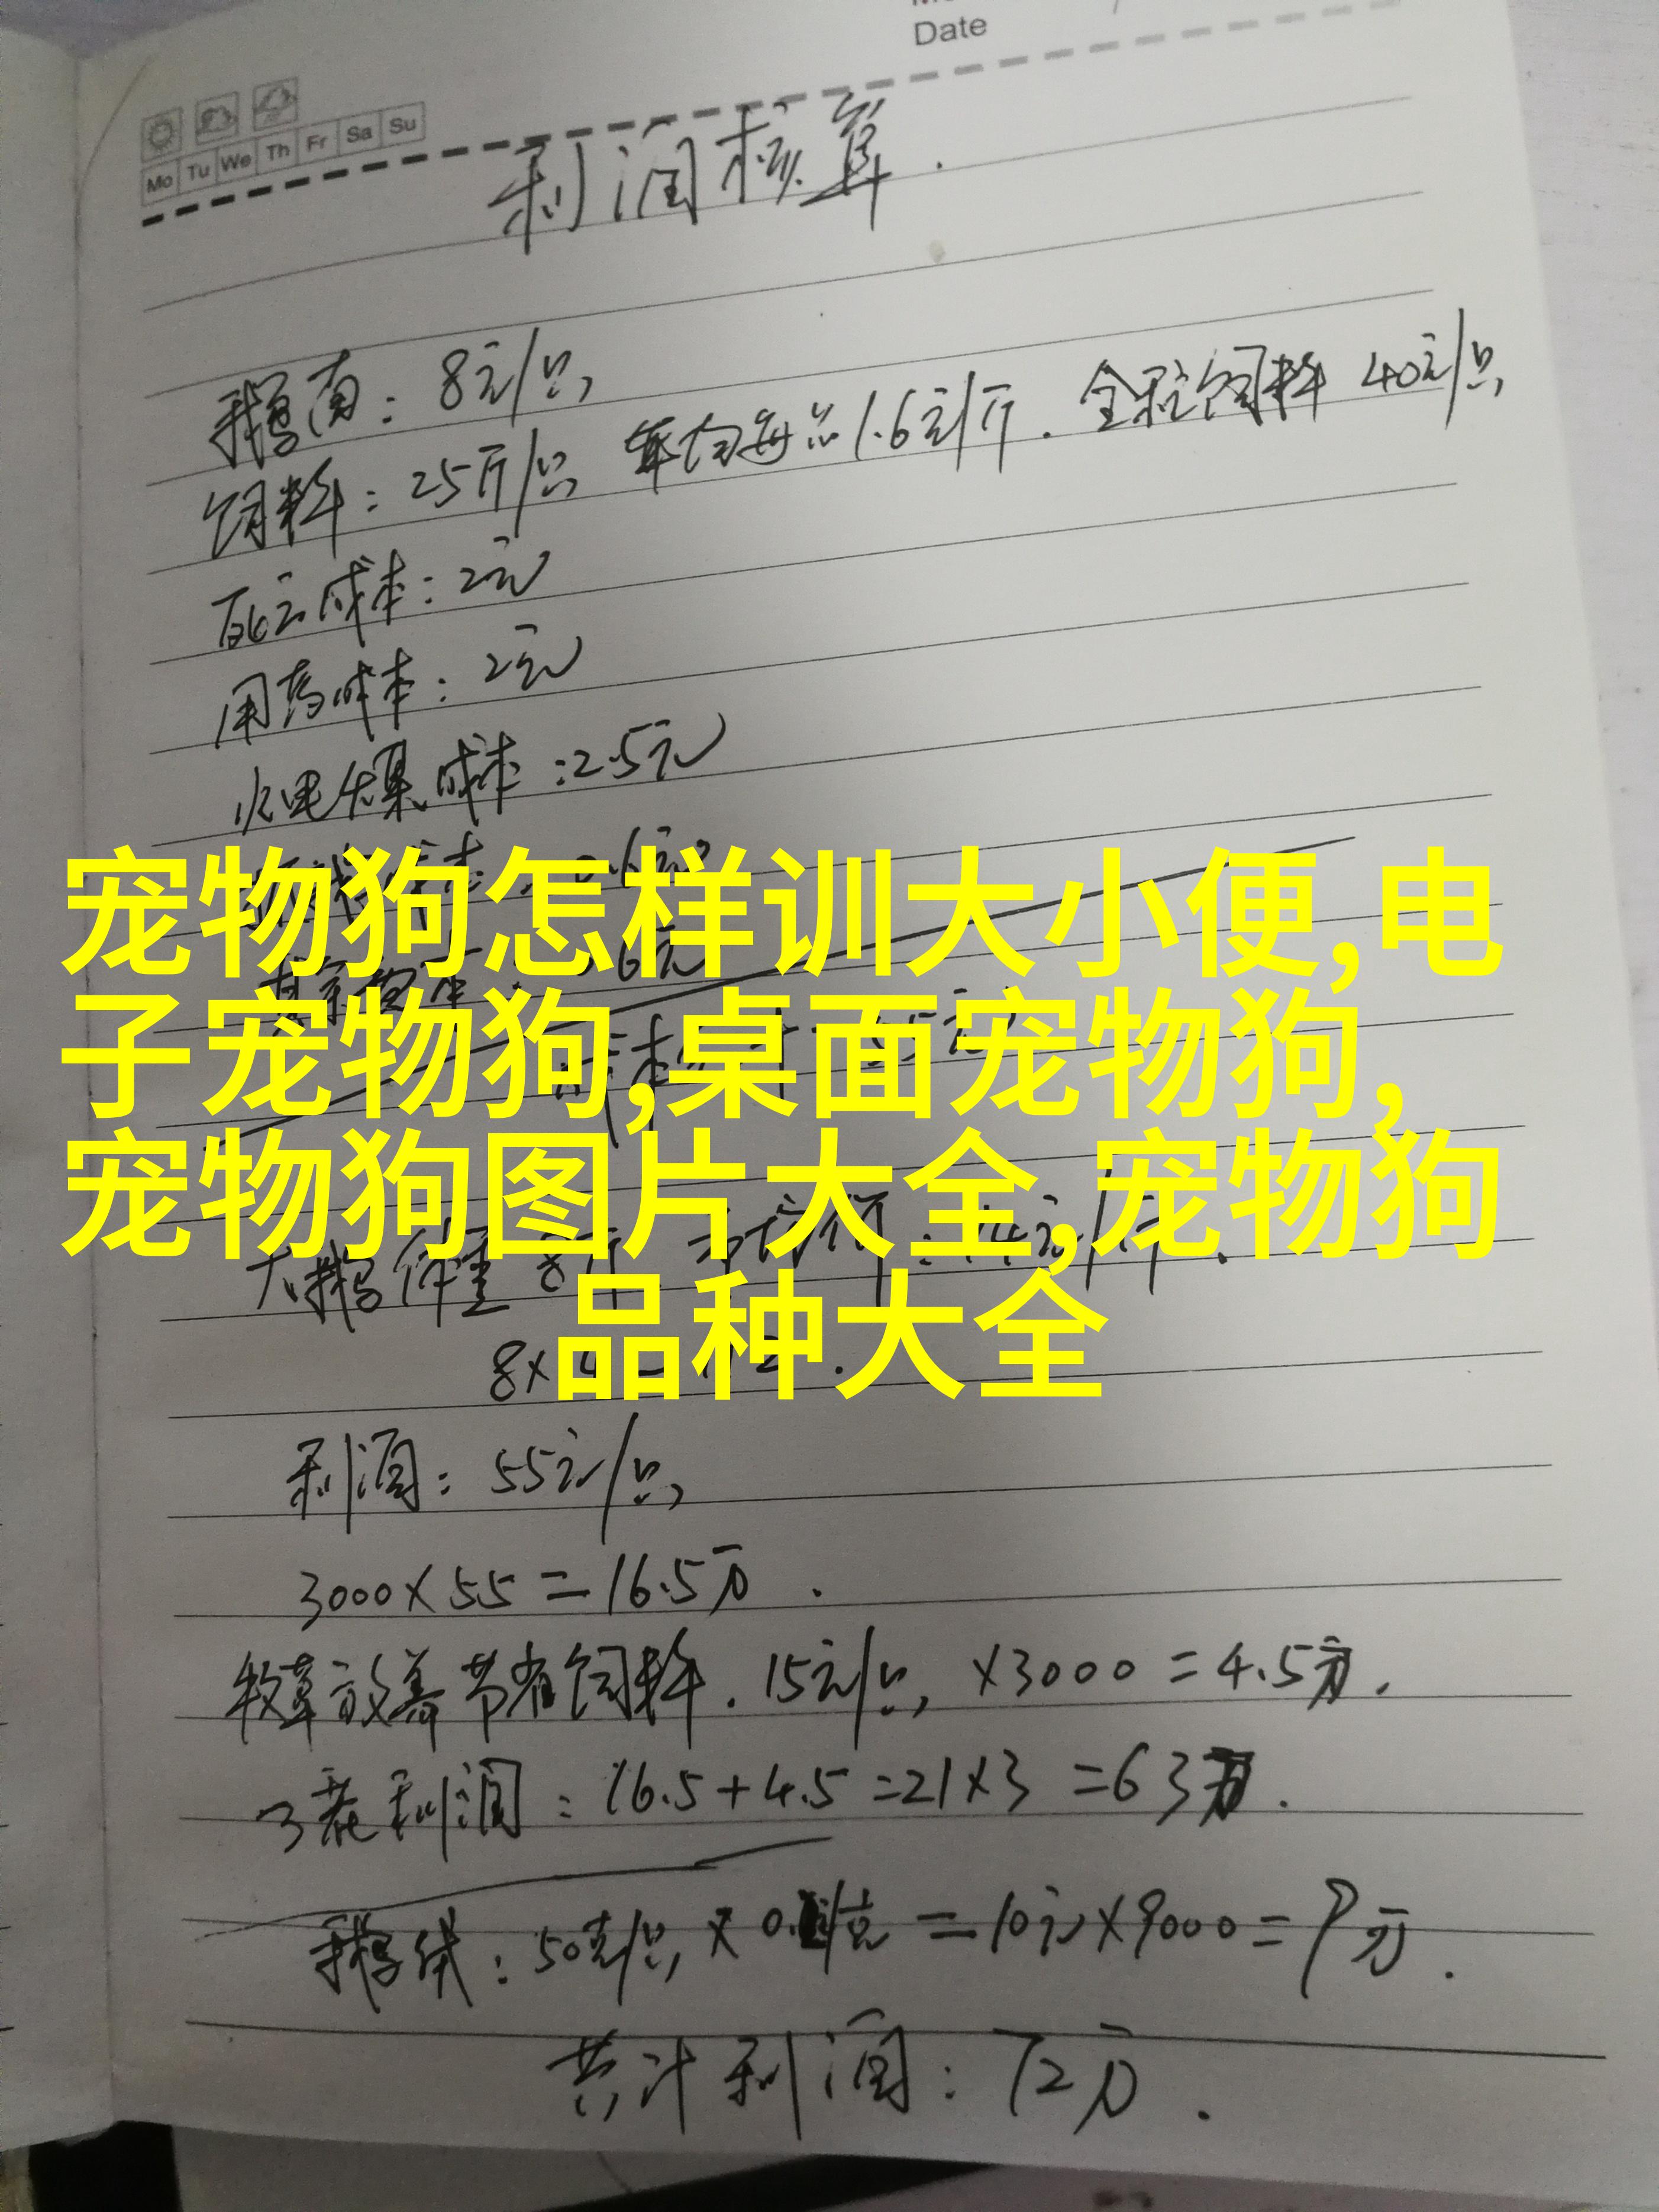 Date
Mo Tu We Th Fr Sa Su
利润核算.
鹅苗: 8元/只,
饲料: 25斤/只, 平均每 1.6元/斤. 全程饲料 40元/只,
死亡成本: 2元
用药成本: 2元
水电煤成本: 2.5元
宠物狗怎样训大小便,电
子宠物狗,桌面宠物狗,
宠物狗图片大全,宠物狗
品种大全
大鹅体重 8斤
利润: 55元/只,
3000×55=16.5万.
牧草放养节省饲料. 15元/只, ×3000=4.5万.
3茬利润: 16.5+4.5=21×3=63万.
鹅绒: 50克/只, × =10元×9000=9万.
共计利润: 72万.